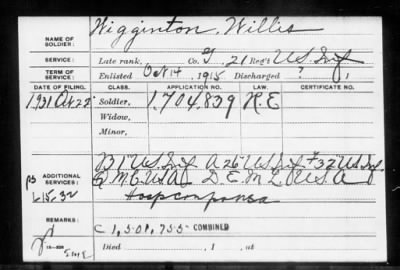 NAME OF SOLDIER: Wigginton, Willis
SERVICE: Late rank, Co. G, 21 Reg't U.S. Inf
TERM OF SERVICE: Enlisted Oct 14, 1915 Discharged ?, 1
DATE OF FILING. CLASS. APPLICATION NO. LAW. CERTIFICATE NO.
1931 Oct 22 Soldier, 1,704,839 N.E
Widow,
Minor,
ADDITIONAL SERVICES: B 1" U.S. Inf A 26" U.S. Inf + 32" U.S. Inf
D.E.M.L. U.S.A
REMARKS: C 1,501,755 COMBINED
Died , 1 , at